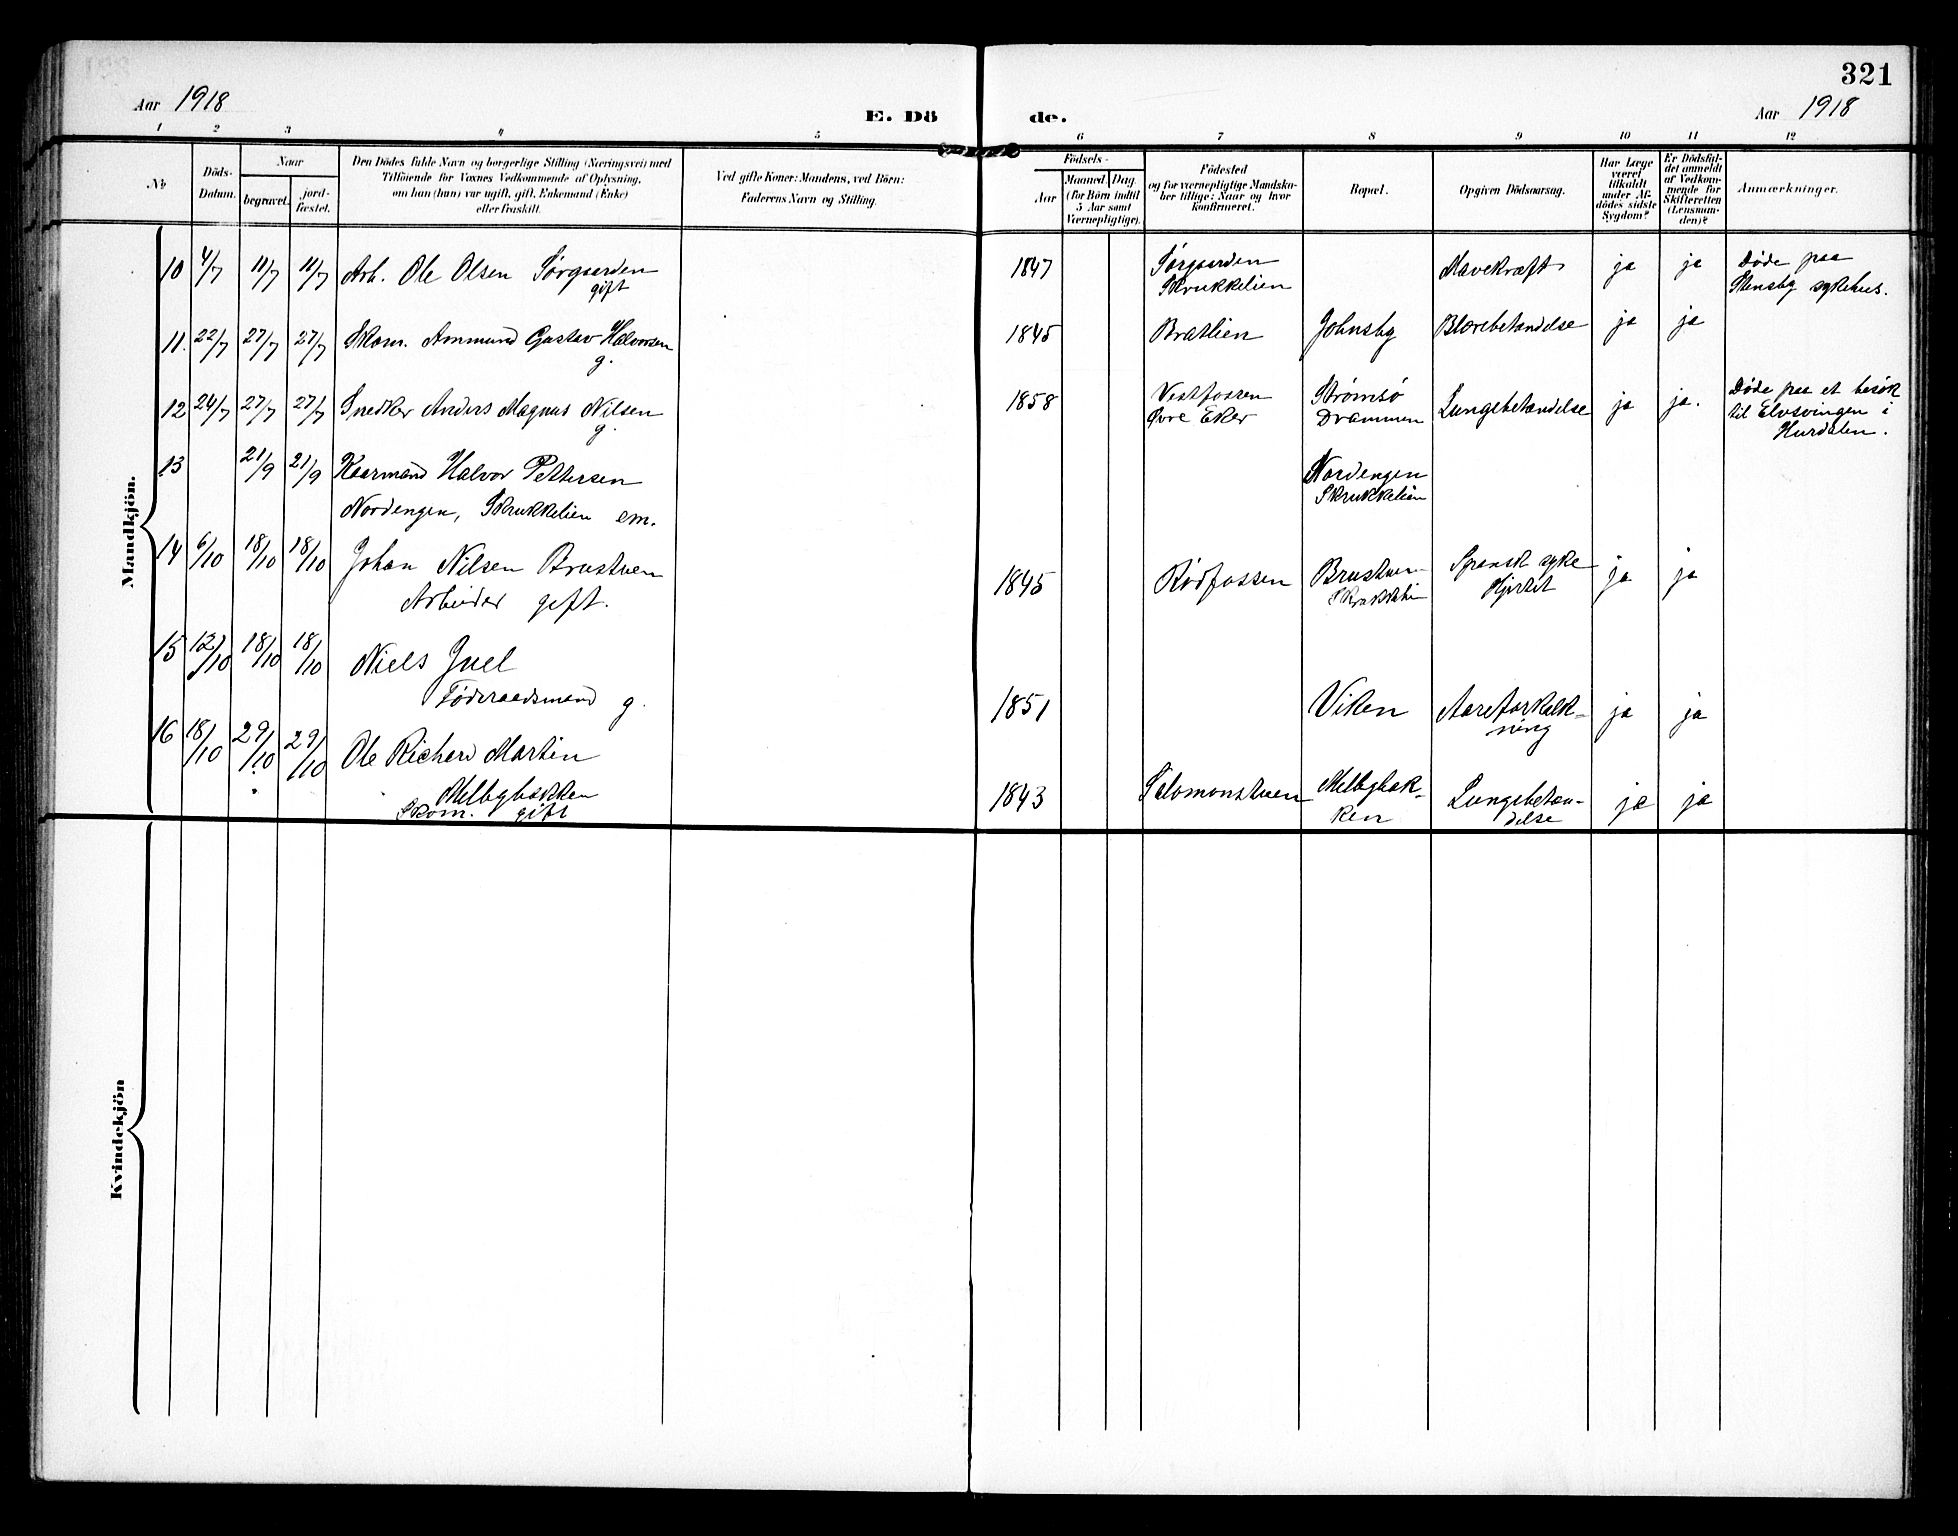 321
Aar 1918
E. Dö de.
Aar 1918
1 2 3 4 5 6 7 8 9 10 11 12
No
Döds-Datum.
Naar
begravet.
jord-fæstet.
Den Dödes fulde Navn og borgerlige Stilling (Næringsvei) med
Tilföiende for Voxnes Vedkommende af Oplysning,
om han (hun) var ugift, gift, Enkemand (Enke)
eller fraskilt.
Ved gifte Koner: Mandens, ved Börn:
Faderens Navn og Stilling.
Födsels-
Aar
Maaned Dag
(for Börn indtil
5 Aar samt
Værnepligtige).
Födested
og for værnepligtige Mandska-
ber tillige: Naar og hvor
konfirmeret.
Bopæl.
Opgiven Dödsaarsag.
Har Læge
været
tilkaldt
under Af-
dödes sidste
Sygdom?
Er Dödsfal-
det anmeldt
af Vedkom-
mende for
Skifteretten
(Lensman-
den)?
Anmærkninger.
Mandkjön.
10 4/7 11/7 11/7 Arb. Ole Olsen Sørgaarden 1847 Sørgaarden Mavekræft ja ja Døde paa
gift Skrukkelien Stensby sykehus.
11. 22/7 27/7 27/7 Skom. Ammund Gustav Halvorsen 1845 Bratlien Johnsby Blærebetændelse ja ja
g.
12 24/7 27/7 27/7 Snedker Anders Magnus Nilsen 1858 Vestfossen Strømsø Lungebetændelse ja ja. Døde paa et besøk
g. Øvre Eker Drammen til Elvsvingen i
Hurdalen.
13 21/9 21/9 Kaarmand Halvor Pettersen Nordengen
Nordengen, Skrukkelien em. Skrukkelien
14 6/10 18/10 18/10 Johan Nilsen Brustuen 1845 Rødfossen Brustuen Spansk syke ja ja
Arbeider gift. Hjertet
15 12/10 18/10 18/10 Niels Juel
Føderaadsmand g. 1851 Viken Aareforkalk-
ning ja ja
16 18/10 29/10 29/10 Ole Richard Martin
Melbybakken 1843 Salomonstuen Melbybak- Lungebetæn- ja ja
Skom. gift ken delse
Kvindekjön